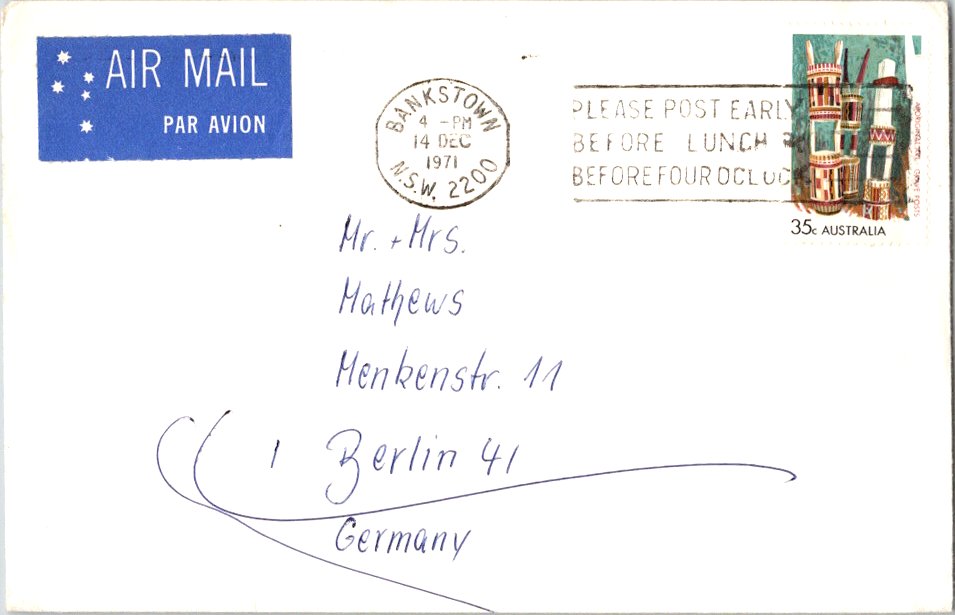 AIR MAIL
PAR AVION
BANKSTOWN
4 -PM
14 DEC
1971
N.S.W. 2200
PLEASE POST EARLY
BEFORE LUNCH
BEFORE FOUR OCLOCK
35c AUSTRALIA
Mr. + Mrs.
Mathews
Menkenstr. 11
1 Berlin 41
Germany